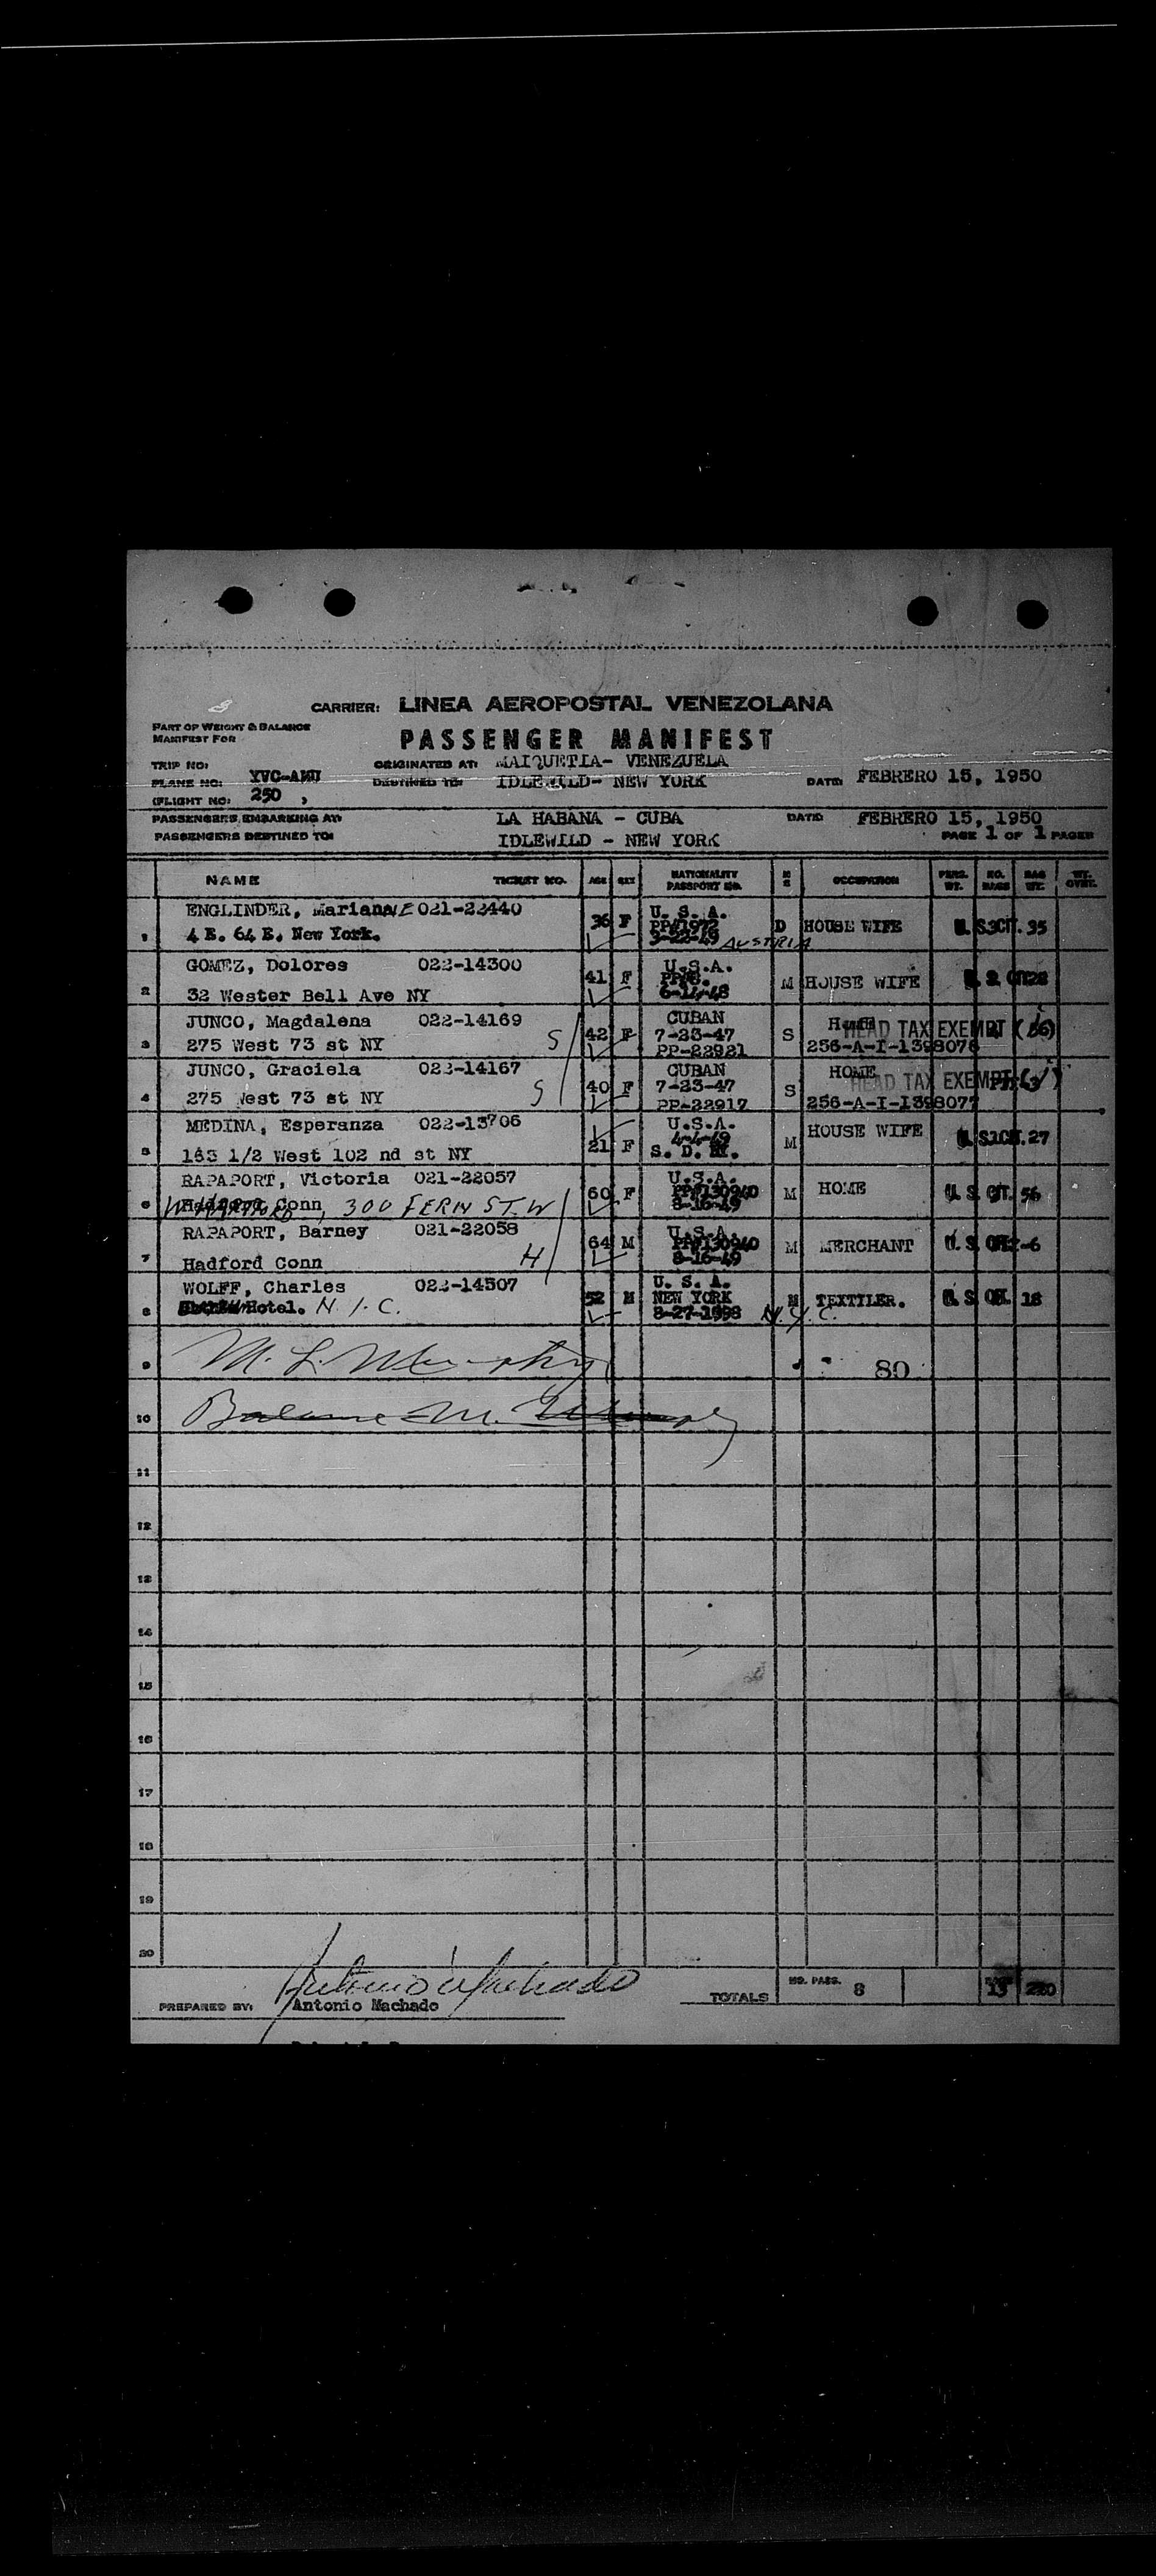 CARRIER: LINEA AEROPOSTAL VENEZOLANA
PART OF WEIGHT & BALANCE
MANIFEST FOR
PASSENGER MANIFEST
TRIP NO:
ORIGINATED AT: MAIQUETIA- VENEZUELA
PLANE NO: YVC-AMU
DESTINED TO: IDLEWILD- NEW YORK
DATE: FEBRERO 15, 1950
(FLIGHT NO: 250 )
PASSENGERS EMBARKING AT: LA HABANA - CUBA DATE: FEBRERO 15, 1950
PASSENGERS DESTINED TO: IDLEWILD - NEW YORK PAGE 1 OF 1 PAGES
NAME TICKET NO. AGE SEX NATIONALITY PASSPORT NO. M S OCCUPATION PERS. WT. NO. BAGS BAG WT. WT. OVER.
1 ENGLINDER, Mariana NE 021-22440 36 F U. S. A. D HOUSE WIFE U. S. CIT. 35
4 E. 64 E. New York. 3-22-49 AUSTRIA
2 GOMEZ, Dolores 022-14300 41 F U.S.A. M HOUSE WIFE
32 Wester Bell Ave NY
3 JUNCO, Magdalena 022-14169 42 F CUBAN S HEAD TAX EXEMPT
275 West 73 st NY S 7-23-47 256-A-I-1398076
PP-22921
4 JUNCO, Graciela 022-14167 40 F CUBAN S HOME HEAD TAX EXEMPT
275 West 73 st NY S 7-23-47
PP-22917 256-A-I-1398077
5 MEDINA, Esperanza 022-13706 21 F U.S.A. M HOUSE WIFE 27
4-4-49
153 1/2 West 102 nd st NY S. D. NY.
6 RAPAPORT, Victoria 021-22057 60 F U.S.A. M HOME U. S. CIT. 56
W. HARTFORD Conn, 300 FERN ST. W PP#130940
8-16-49
7 RAPAPORT, Barney 021-22058 64 M U.S.A. M MERCHANT
PP#130940
Hadford Conn H 8-16-49
8 WOLFF, Charles 022-14507 52 M U. S. A. M TEXTILER. 18
Hotel. N.Y.C. NEW YORK
8-27-1998 N.Y.C.
9 M. L. Murphy 80
10
11
12
13
14
15
16
17
18
19
20
PREPARED BY: Antonio Machado
Antonio Machado
TOTALS NO. PASS. 8 13 220